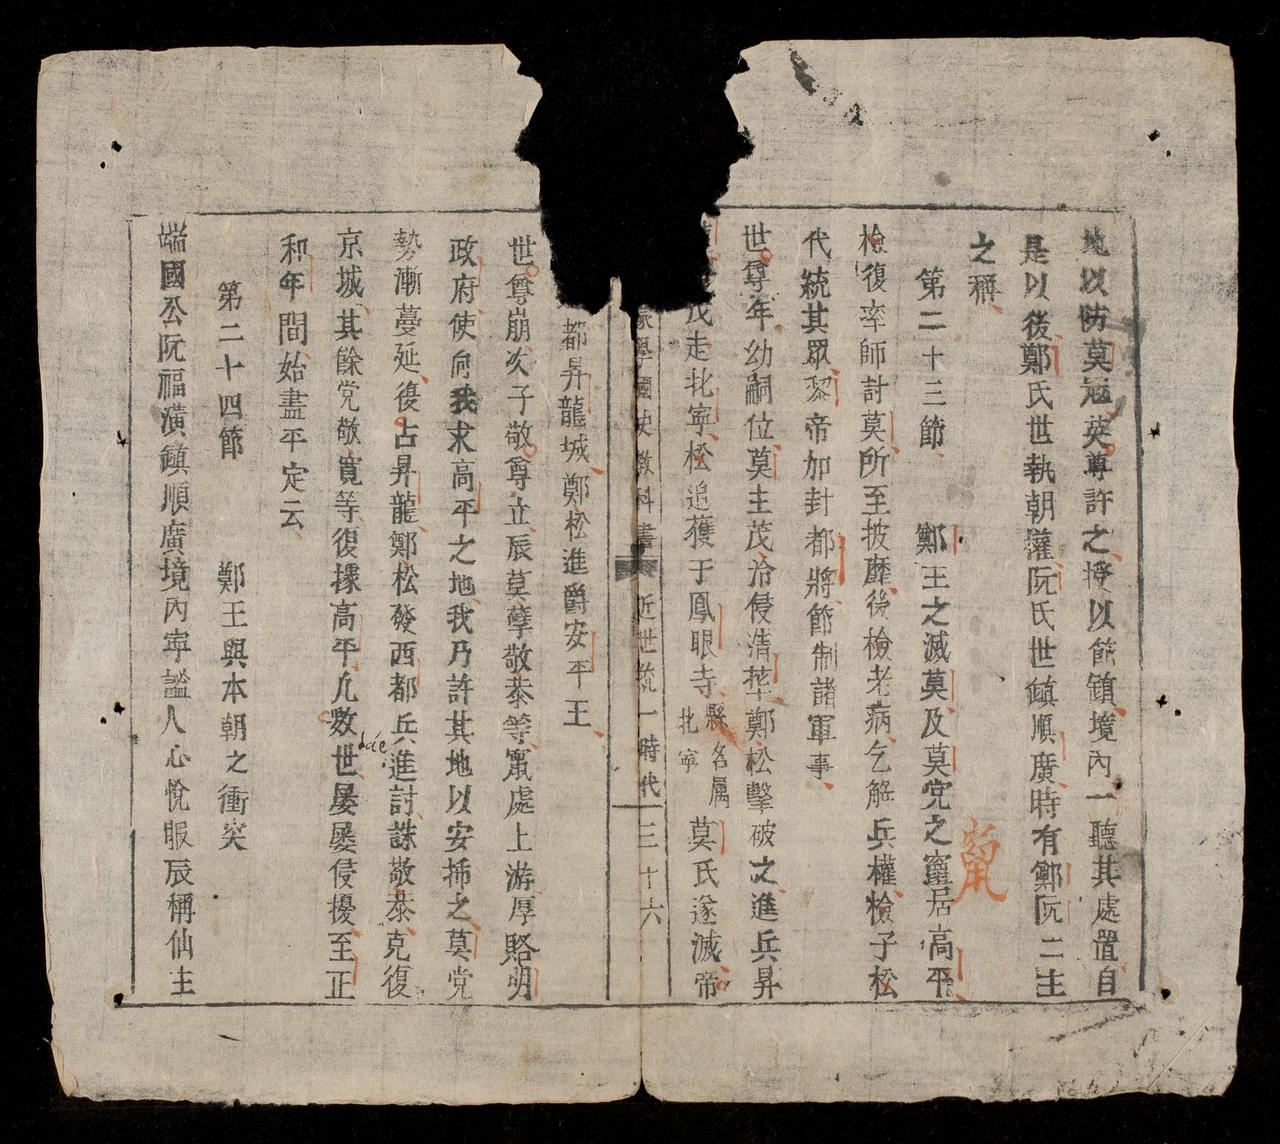 地以防莫冦英尊許之授以節鎮境内一聽其處置自
是以後鄭氏世執朝權阮氏世鎮順廣時有鄭阮二主
之稱
第二十三節 鄭王之滅莫及莫党之竄居高平
檢復率師討莫所至披靡後檢老病乞解兵權檢子松
代統其眾黎帝加封都將節制諸軍事
世尊年幼嗣位莫主茂洽侵清華鄭松擊破之進兵昇
茂走北寧松追獲于鳳眼寺 縣名属北寧 莫氏遂滅帝
學國史教科書 近世統一時代 三十六
都昇龍城鄭松進爵安平王
世尊崩次子敬尊立辰莫孽敬恭等竄處上游厚賂明
政府使向我求高平之地我乃許其地以安揷之莫党
勢漸蔓延復占昇龍鄭松發西都兵進討誅敬恭克復
京城其餘党敬寬等復據高平凡數世屡屡侵擾至正
和年間始盡平定云
第二十四節 鄭王與本朝之衝突
端國公阮福潢鎮順廣境内寧謐人心悅服辰稱仙主
竄